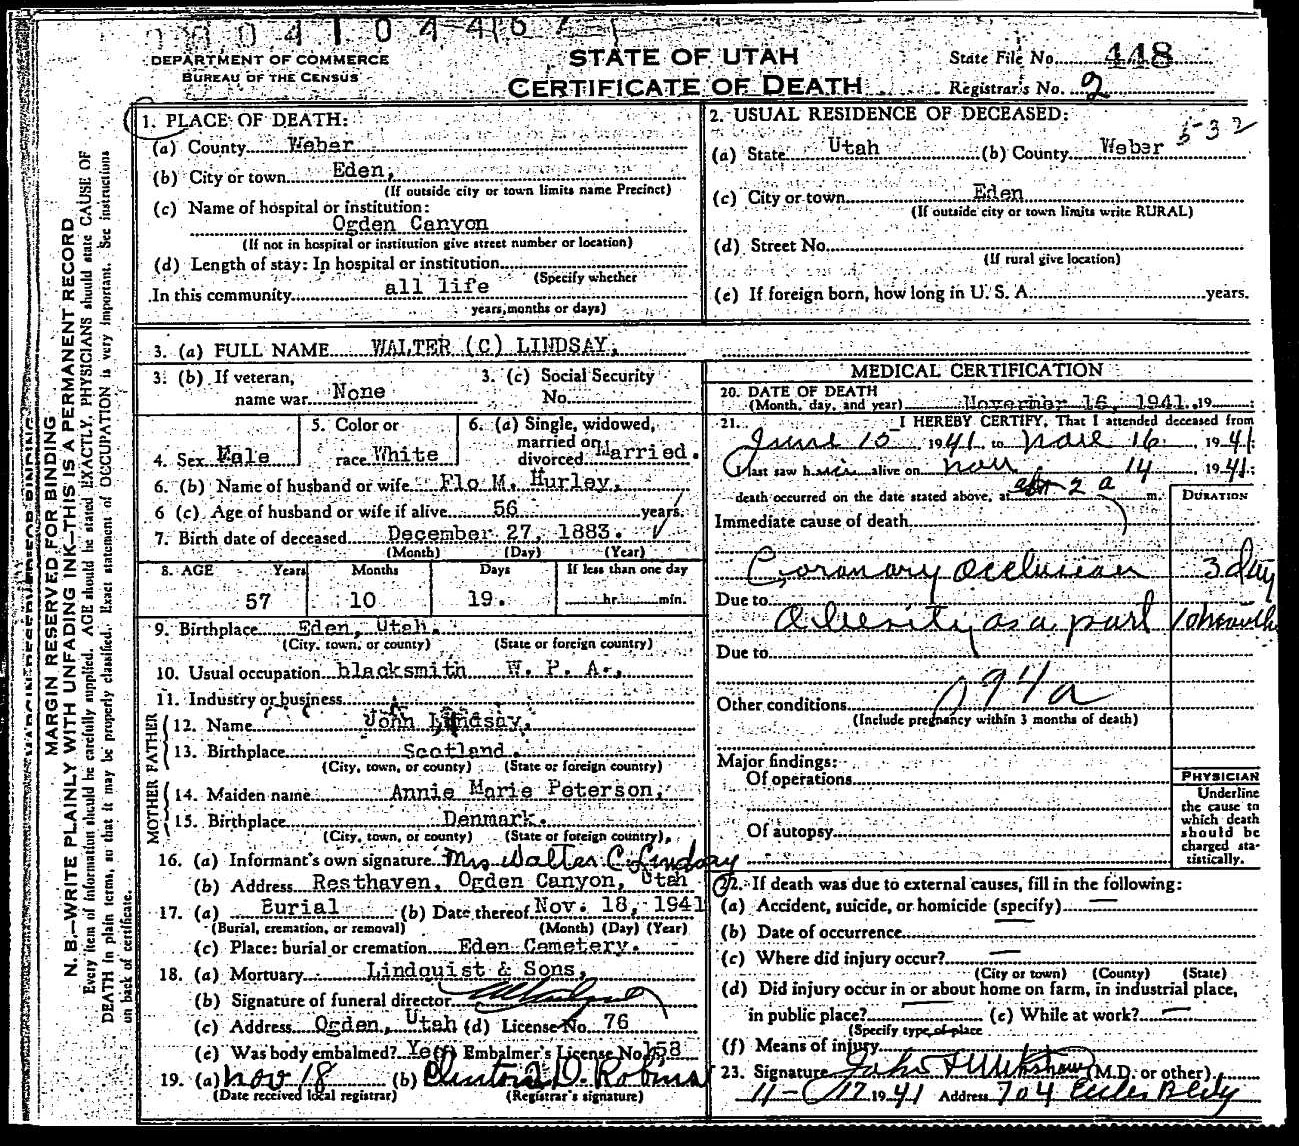 DEPARTMENT OF COMMERCE
BUREAU OF THE CENSUS
STATE OF UTAH
CERTIFICATE OF DEATH
State File No. 448
Registrar's No. 2
MARGIN RESERVED FOR BINDING
N. B.—WRITE PLAINLY WITH UNFADING INK—THIS IS A PERMANENT RECORD
Every item of information should be carefully supplied. AGE should be stated EXACTLY. PHYSICIANS should state CAUSE OF
DEATH in plain terms, so that it may be properly classified. Exact statement of OCCUPATION is very important. See instructions
on back of certificate.
1. PLACE OF DEATH:
(a) County Weber
(b) City or town Eden,
(If outside city or town limits name Precinct)
(c) Name of hospital or institution:
Ogden Canyon
(If not in hospital or institution give street number or location)
(d) Length of stay: In hospital or institution
(Specify whether
In this community all life
years, months or days)
2. USUAL RESIDENCE OF DECEASED:
532
(a) State Utah (b) County Weber
(c) City or town Eden
(If outside city or town limits write RURAL)
(d) Street No.
(If rural give location)
(e) If foreign born, how long in U. S. A. years.
3. (a) FULL NAME WALTER (C) LINDSAY,
3. (b) If veteran,
name war None
3. (c) Social Security
No.
4. Sex Male
5. Color or
race White
6. (a) Single, widowed,
married or
divorced Married.
6. (b) Name of husband or wife Flo M. Hurley,
6 (c) Age of husband or wife if alive 56 years.
7. Birth date of deceased December 27, 1883.
(Month) (Day) (Year)
8. AGE Years Months Days If less than one day
57 10 19. hr. min.
9. Birthplace Eden, Utah.
(City, town, or county) (State or foreign country)
10. Usual occupation blacksmith W. P. A.,
11. Industry or business
FATHER
12. Name John Lindsay,
13. Birthplace Scotland.
(City, town, or county) (State or foreign country)
MOTHER
14. Maiden name Annie Marie Peterson,
15. Birthplace Denmark.
(City, town, or county) (State or foreign country)
16. (a) Informant's own signature Mrs Walter C. Lindsay
(b) Address Resthaven, Ogden Canyon, Utah
17. (a) Burial (b) Date thereof Nov. 18, 1941
(Burial, cremation, or removal) (Month) (Day) (Year)
(c) Place: burial or cremation Eden Cemetery.
18. (a) Mortuary Lindquist & Sons,
(b) Signature of funeral director
(c) Address Ogden, Utah (d) License No. 76
(e) Was body embalmed? Yes (f) Embalmer's License No. 158
19. (a) Nov 18 (b) Clinton D. Robins
(Date received local registrar) (Registrar's signature)
MEDICAL CERTIFICATION
20. DATE OF DEATH
(Month, day, and year) November 16, 1941. 19
21. I HEREBY CERTIFY, That I attended deceased from
June 15 1941 to Nov 16 1941
I last saw him alive on Nov 14 1941;
death occurred on the date stated above, at 2 a m.
DURATION
Immediate cause of death
Coronary Occlusion 3 day
Due to
Obesity as a part 10 months
Due to
94a
Other conditions
(Include pregnancy within 3 months of death)
Major findings:
Of operations
Of autopsy
PHYSICIAN
Underline
the cause to
which death
should be
charged sta-
tistically.
22. If death was due to external causes, fill in the following:
(a) Accident, suicide, or homicide (specify) —
(b) Date of occurrence —
(c) Where did injury occur? —
(City or town) (County) (State)
(d) Did injury occur in or about home on farm, in industrial place,
in public place? — (e) While at work? —
(Specify type of place
(f) Means of injury
23. Signature John (M.D. or other)
11-17 1941 Address 704 Eccles Bldg